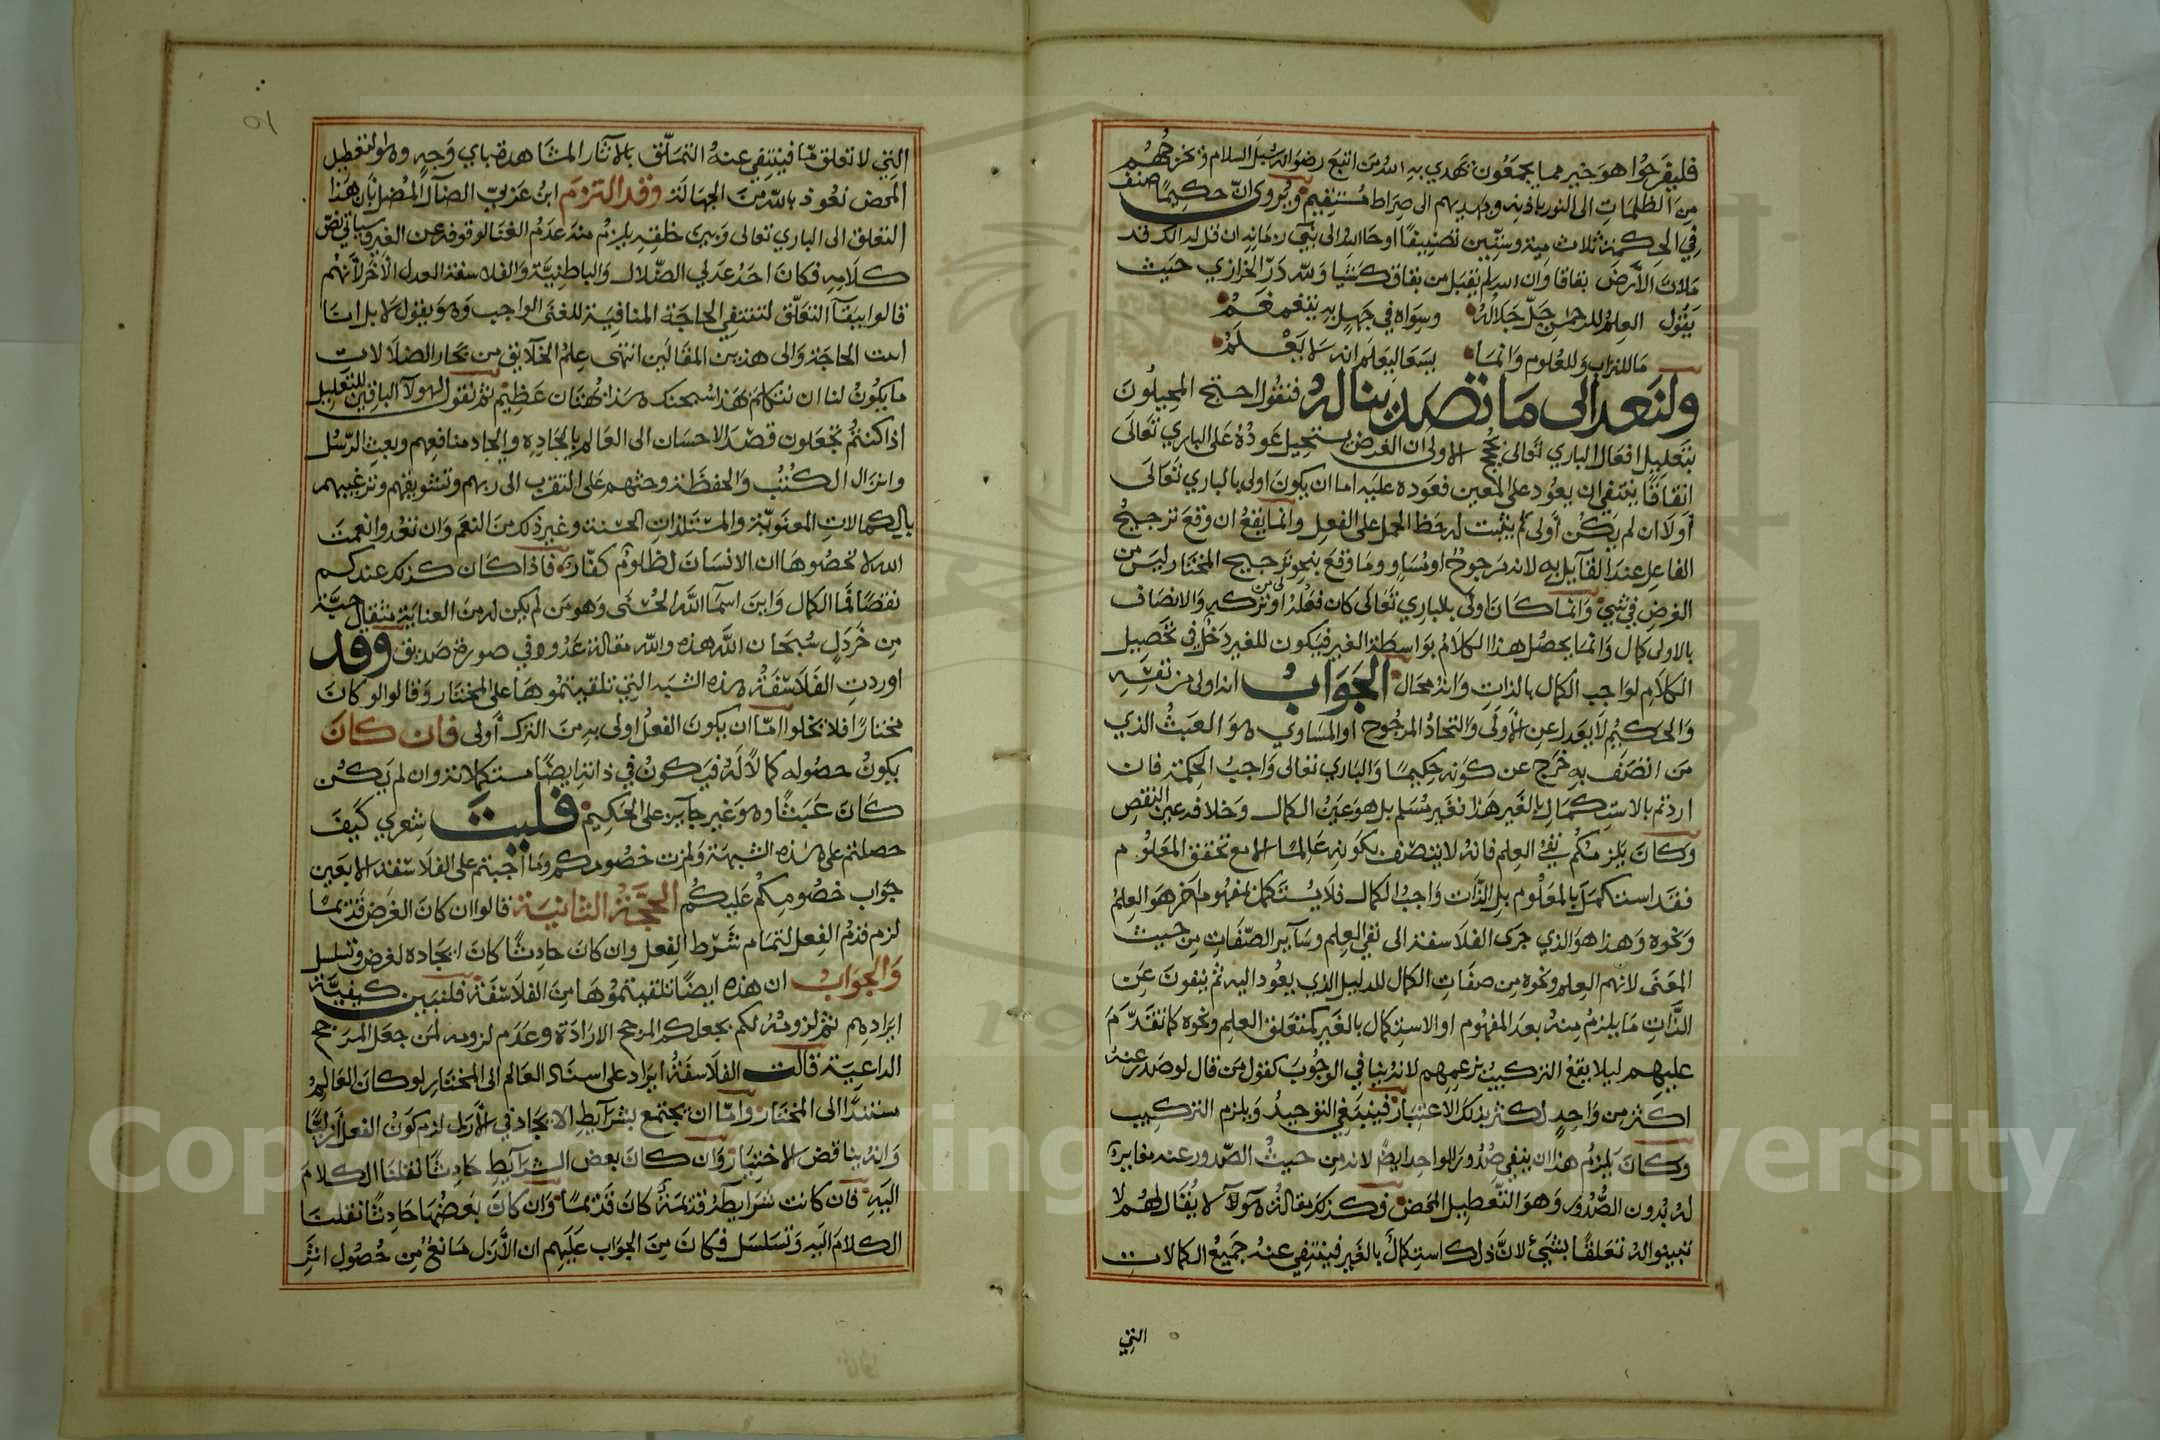 فليفرحوا هو خير مما يجمعون يهدي به الله من اتبع رضوانه سبل السلام ويخرجهم
من الظلمات الى النور باذنه ويهديهم الى صراط مستقيم ويروى ان حكيما صنف
في الحكمة ثلاث مية وستين تصنيفا اوحى الله الى نبي زمانه ان قل له انك قد
ملات الأرض بقاقا وان الله لم يقبل من بقاقك شيا ولله در الخرازي حيث
يقول العلم للرحمن جل جلاله وسواه في جهله يتغمغم
ما للتراب وللعلوم وانما يسعى ليعلم انه لا يعلم
ولنعد الى ما تصدينا له فنقول احتج المحيلون
بتعليل افعال الباري تعالى بحجج الاولى ان الغرض يستحيل عوده على الباري تعالى
اتفاقا بينتفي ان يعود على المعين فعوده عليه اما ان يكون اولى بالباري تعالى
أولا ان لم يكن أولى لم يثبت له حظ الحمل على الفعل وانما يقع ان وقع ترجيح
الفاعل عند القآيل به لانه مرجوح او مساو وما وقع بنحو ترجيح المختار ليس من
الغرض في شي وانما كان اولى بالباري تعالى كان فعله اولى من تركه والاتصاف
بالاولى كمال وانما يحصل هذا الكلام بواسطة الغير فيكون للغير دخل في تحصيل
الكلام لواجب الكمال بالذات وانه محال الجواب انه اولى من نفسه
والحكيم لا يعدل عن الأولى واتحاد المرجوح او المساوي هو العبث الذي
من اتصف به خرج عن كونه حكيما والباري تعالى واجب الحكمة فان
اردتم بالاستكمال بالغير هذا فغير مسلم بل هو عين الكمال وخلافه عين النقص
وكان يلزمكم نفي العلم فانه لا يتصف بكونه عالما الا مع تحقق المعلوم
فقد استكمل بالمعلوم بل الذات واجب الكمال فلا يستكمل بمفهوم اخر هو العلم
ونحوه وهذا هو الذي جرى الفلاسفة الى نفي العلم وسآير الصفات من حيث
المعنى لانهم العلم ونحوه من صفات الكمال للدليل الذي يعود اليه ثم ينفون عن
الذات ما يلزم منه بعد المفهوم او الاستكمال بالغير كمتعلق العلم ونحوه كما تقدم
عليهم ليلا يقع التركيب بزعمهم لانه ينافي الوجوب كقول من قال لو صدر عنه
اكثر من واحد لكثر بذلك الاعتبار فينبغي التوحيد ويلزم التركيب
وكان يلزم هذا ان ينفي صدور الواحد ايضا لانه من حيث الصدور عنه مغايرة
له بدون الصدور وهو التعطيل المحض فكذلك مقالة هولآ لا يقال لهم لا
تبينوا له تعلقا بشيء لان ذلك استكمال بالغير فينتفي عنه جميع الكمالات
التي
٥١
التي لا تعلق مّا فينتفي عنه التسلّق بالآثار المشاهدة باي وجه وهو لتعطيل
المحض نعوذ بالله من الجهالة وقد التزم ابن عربي الضال المضل بان هذا
التعلق الى الباري تعالى وبين خلقه يلزم منه عدم الغنا لوقوفه عن الغير وسياتي نصّ
كلامه فكان احد عدلي الضلال والباطنية والفلاسفة العدل الآخر لأنهم
قالوا ببقآ التعلق لتنتفي الحاجة المنافية للغنى الواجب وهو يقول لا بل انا
اثبت الحاجة والى هذين المقالين انتهى علم الخلايق من بحار الضلالات
ما يكون لنا ان نتكلم بهذا سبحنك هذا بهتان عظيم ثم نقول لهولآ النافين للتعليل
اذا كنتم تجعلون قصد الاحسان الى العالم بايجاده وايجاد منافعهم وبعث الرسل
وانزال الكتب والحفظة وحثهم على التقرب الى ربهم وتشويقهم وترغيبهم
بالكمالات المعنوية والمستلذات الحسنة وغير ذلك من النعم وان تعدوا نعمت
الله لا تحصوها ان الانسان لظلوم كفار فاذا كان كذلك عندكم
نقصا فما الكمال واين اسما الله الحسنى وهو من لم يكن له من العناية مثقال حبة
من خردل سبحان الله هذه والله مقالة عدو وفي صورة صديق وقد
اوردت الفلاسفة هذه الشبه التي تلقيتموها على المختار وقالوا لو كان
مختارا فلا يخلوا امّا ان يكون الفعل اولى به من الترك أولى فان كان
يكون حصوله كمالا له فيكون في ذاته ايضا مستكملا به وان لم يكن
كان عبثا وهو غير جآيز على الحكيم فليت شعري كيف
حصلتم على هذه الشبهة ولمزت خصومكم وما أجبتم على الفلاسفة الا بعين
جواب خصومكم عليكم الحجة الثانية قالوا ان كان الغرض قديما
لزم قدم الفعل لتمام شرط الفعل وان كان حادثا كان ايجاده لغرض وتسلسل
والجواب ان هذه ايضا تلقيتموها من الفلاسفة فلنبين كيفية
ايرادهم ثم لزومه لكم بجعلكم المرجح الارادة وعدم لزومه لمن جعل المرجح
الداعية قالت الفلاسفة ايراد على اسناد العالم الى المختار لو كان العالم
مستندا الى المختار واما ان يجتمع بشرآيط الايجاد في الأزل لزم كون الفعل أزليا
وانه يناقض الاختيار وان كان بعض الشرآيط حادثا نقلنا الكلام
اليه فان كانت شرايطه قديمة كان قديما وان كان بعضها حادثا نقلنا
الكلام اليه وتسلسل فكان من الجواب عليهم ان الأزل مانع من حصول اثر
Copyright © King Saud University